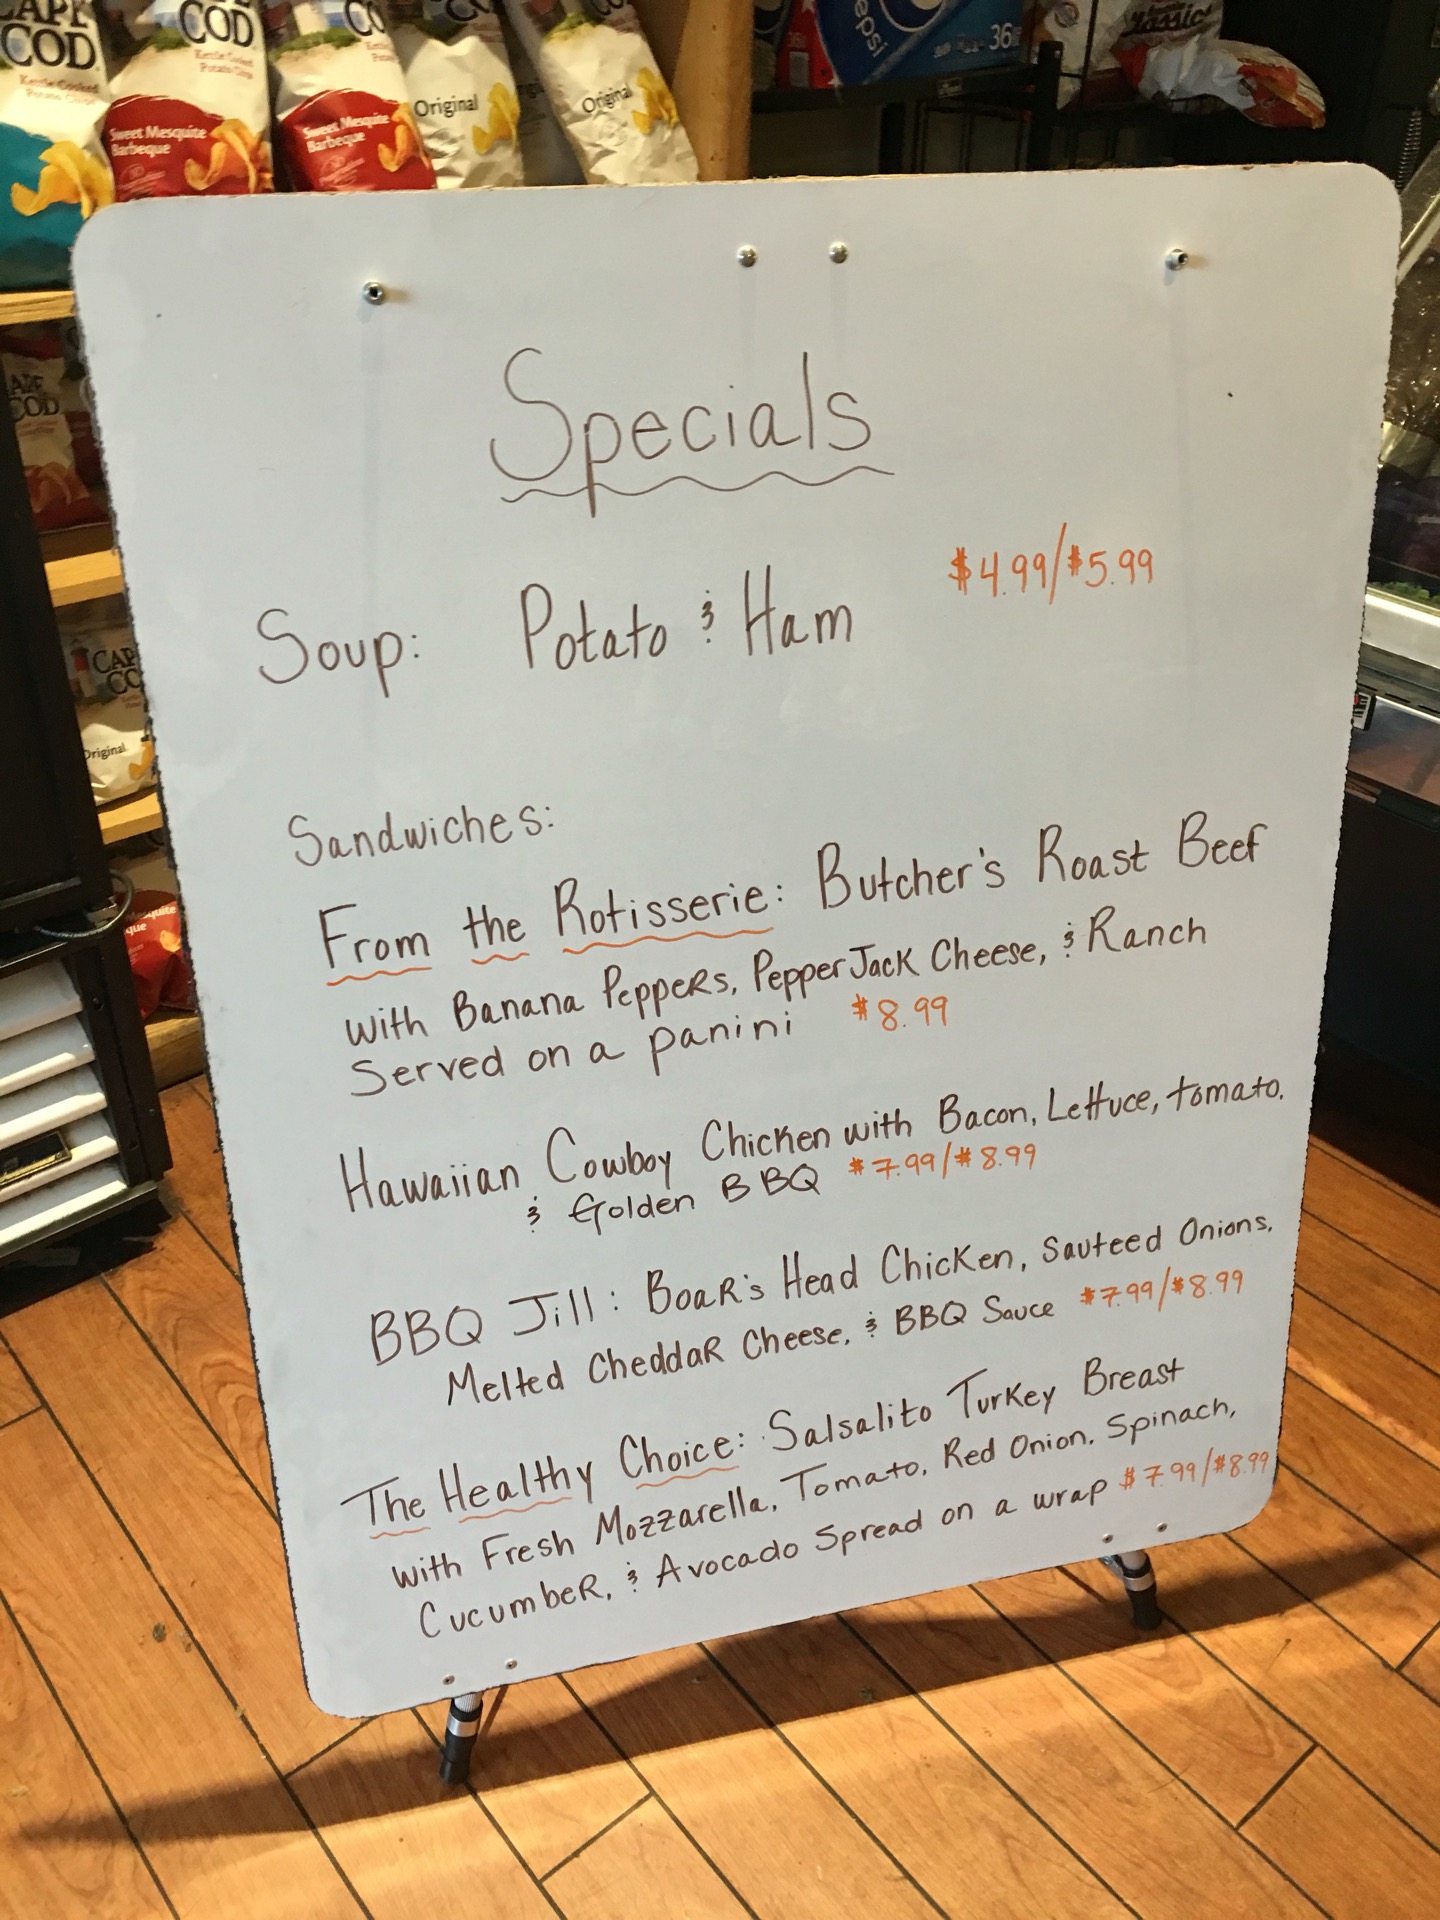 CAPE COD
Kettle Cooked
Potato Chips
COD
Kettle Cooked
Potato Chips
Sweet Mesquite
Barbeque
Sweet Mesquite
Barbeque
Original
Original
pepsi
36
Classics
CAPE
COD
Original
Mesquite
Specials
$4.99/$5.99
Soup: Potato & Ham
Sandwiches:
From the Rotisserie: Butcher's Roast Beef
with Banana Peppers, PepperJack Cheese, & Ranch
Served on a panini $8.99
Hawaiian Cowboy Chicken with Bacon, Lettuce, tomato,
& Golden BBQ $7.99/$8.99
BBQ Jill: Boar's Head Chicken, Sauteed Onions,
Melted Cheddar Cheese, & BBQ Sauce $7.99/$8.99
The Healthy Choice: Salsalito Turkey Breast
with Fresh Mozzarella, Tomato, Red Onion, Spinach,
Cucumber, & Avocado Spread on a wrap $7.99/$8.99